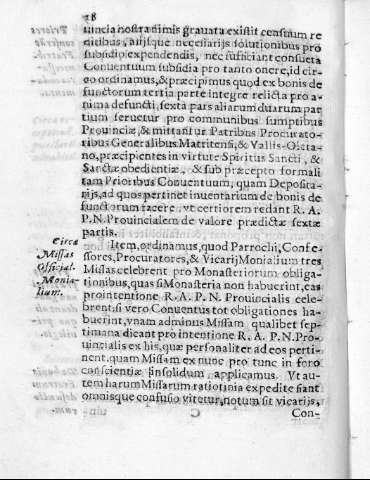 28
uincia nostra nimis grauata existit censuum re
nitibus, alijsque necessarijs solutionibus pro
subsidio expendendis, nec sufficiant consueta
Conuentuum subsidia pro tanto onere, id cir-
go ordinamus, & præcipimus quod ex bonis de
functorum tertia parte integre relicta pro a-
nima defuncti, sexta pars aliarum duarum par
tium seruetur pro communibus sumptibus
Prouinciæ, & mittantur Patribus Procurato-
ribus Generalibus Matritensi, & Vallis-Oleta-
no, præcipientes in virtute Spiritus Sancti, &
Sanctæ obedientiæ, & sub præcepto formali
tam Prioribus Conuentuum, quam Deposita-
rijs, ad quos pertinet inuentarium de bonis de
functorum facere, vt certiorem redant R. A.
P. N. Prouincialem de valore prædictæ sextæ
partis.
Circa
Missas
Official.
Monia-
lium.
Item, ordinamus, quod Parrochi, Confe-
sores, Procuratores, & Vicarij Monialium tres
Missas celebrent pro Monasteriorum obliga-
tionibus, quas si Monasteria non habuerint, eas
pro intentione R. A. P. N. Prouincialis cele-
brent: si vero Conuentus tot obligationes ha-
buerint, vnam adminus Missam qualibet sep-
timana dicant pro intentione R. A. P. N. Pro-
uincialis ex his, quæ personaliter ad eos perti-
nent, quam Missam ex nunc pro tunc in foro
conscientiæ insolidum, applicamus. Vt au-
tem harum Missarum ratiotinia expedite fiant
omnisque confusio vitetur, notum sit vicarijs,
C
Con-